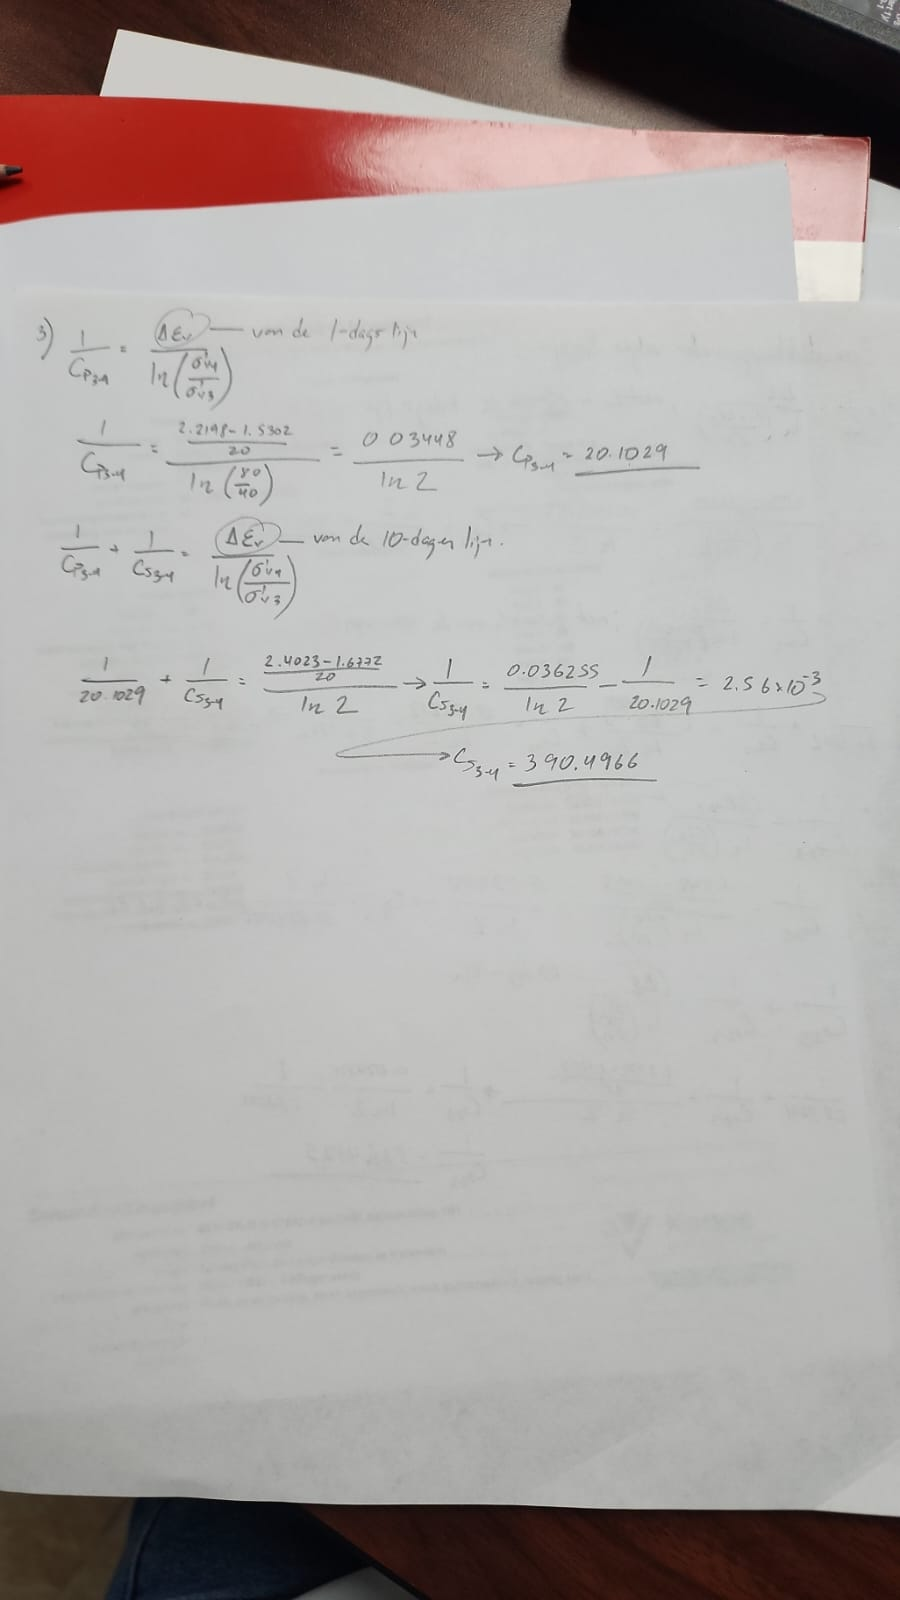 3) 1/Cp3-4 = Δεv/ln(σ'v4/σ'v3) — van de 1-dags lijn
1/Cp3-4 = ((2.2198-1.5302)/20)/ln(80/40) = 0.03448/ln 2 → Cp3-4 = 20.1029
1/Cp3-4 + 1/Cs3-4 = Δεv/ln(σ'v4/σ'v3) — van de 10-dagen lijn.
1/20.1029 + 1/Cs3-4 = ((2.4023-1.6772)/20)/ln 2 → 1/Cs3-4 = 0.036255/ln 2 - 1/20.1029 = 2.56x10^-3
→ Cs3-4 = 390.4966